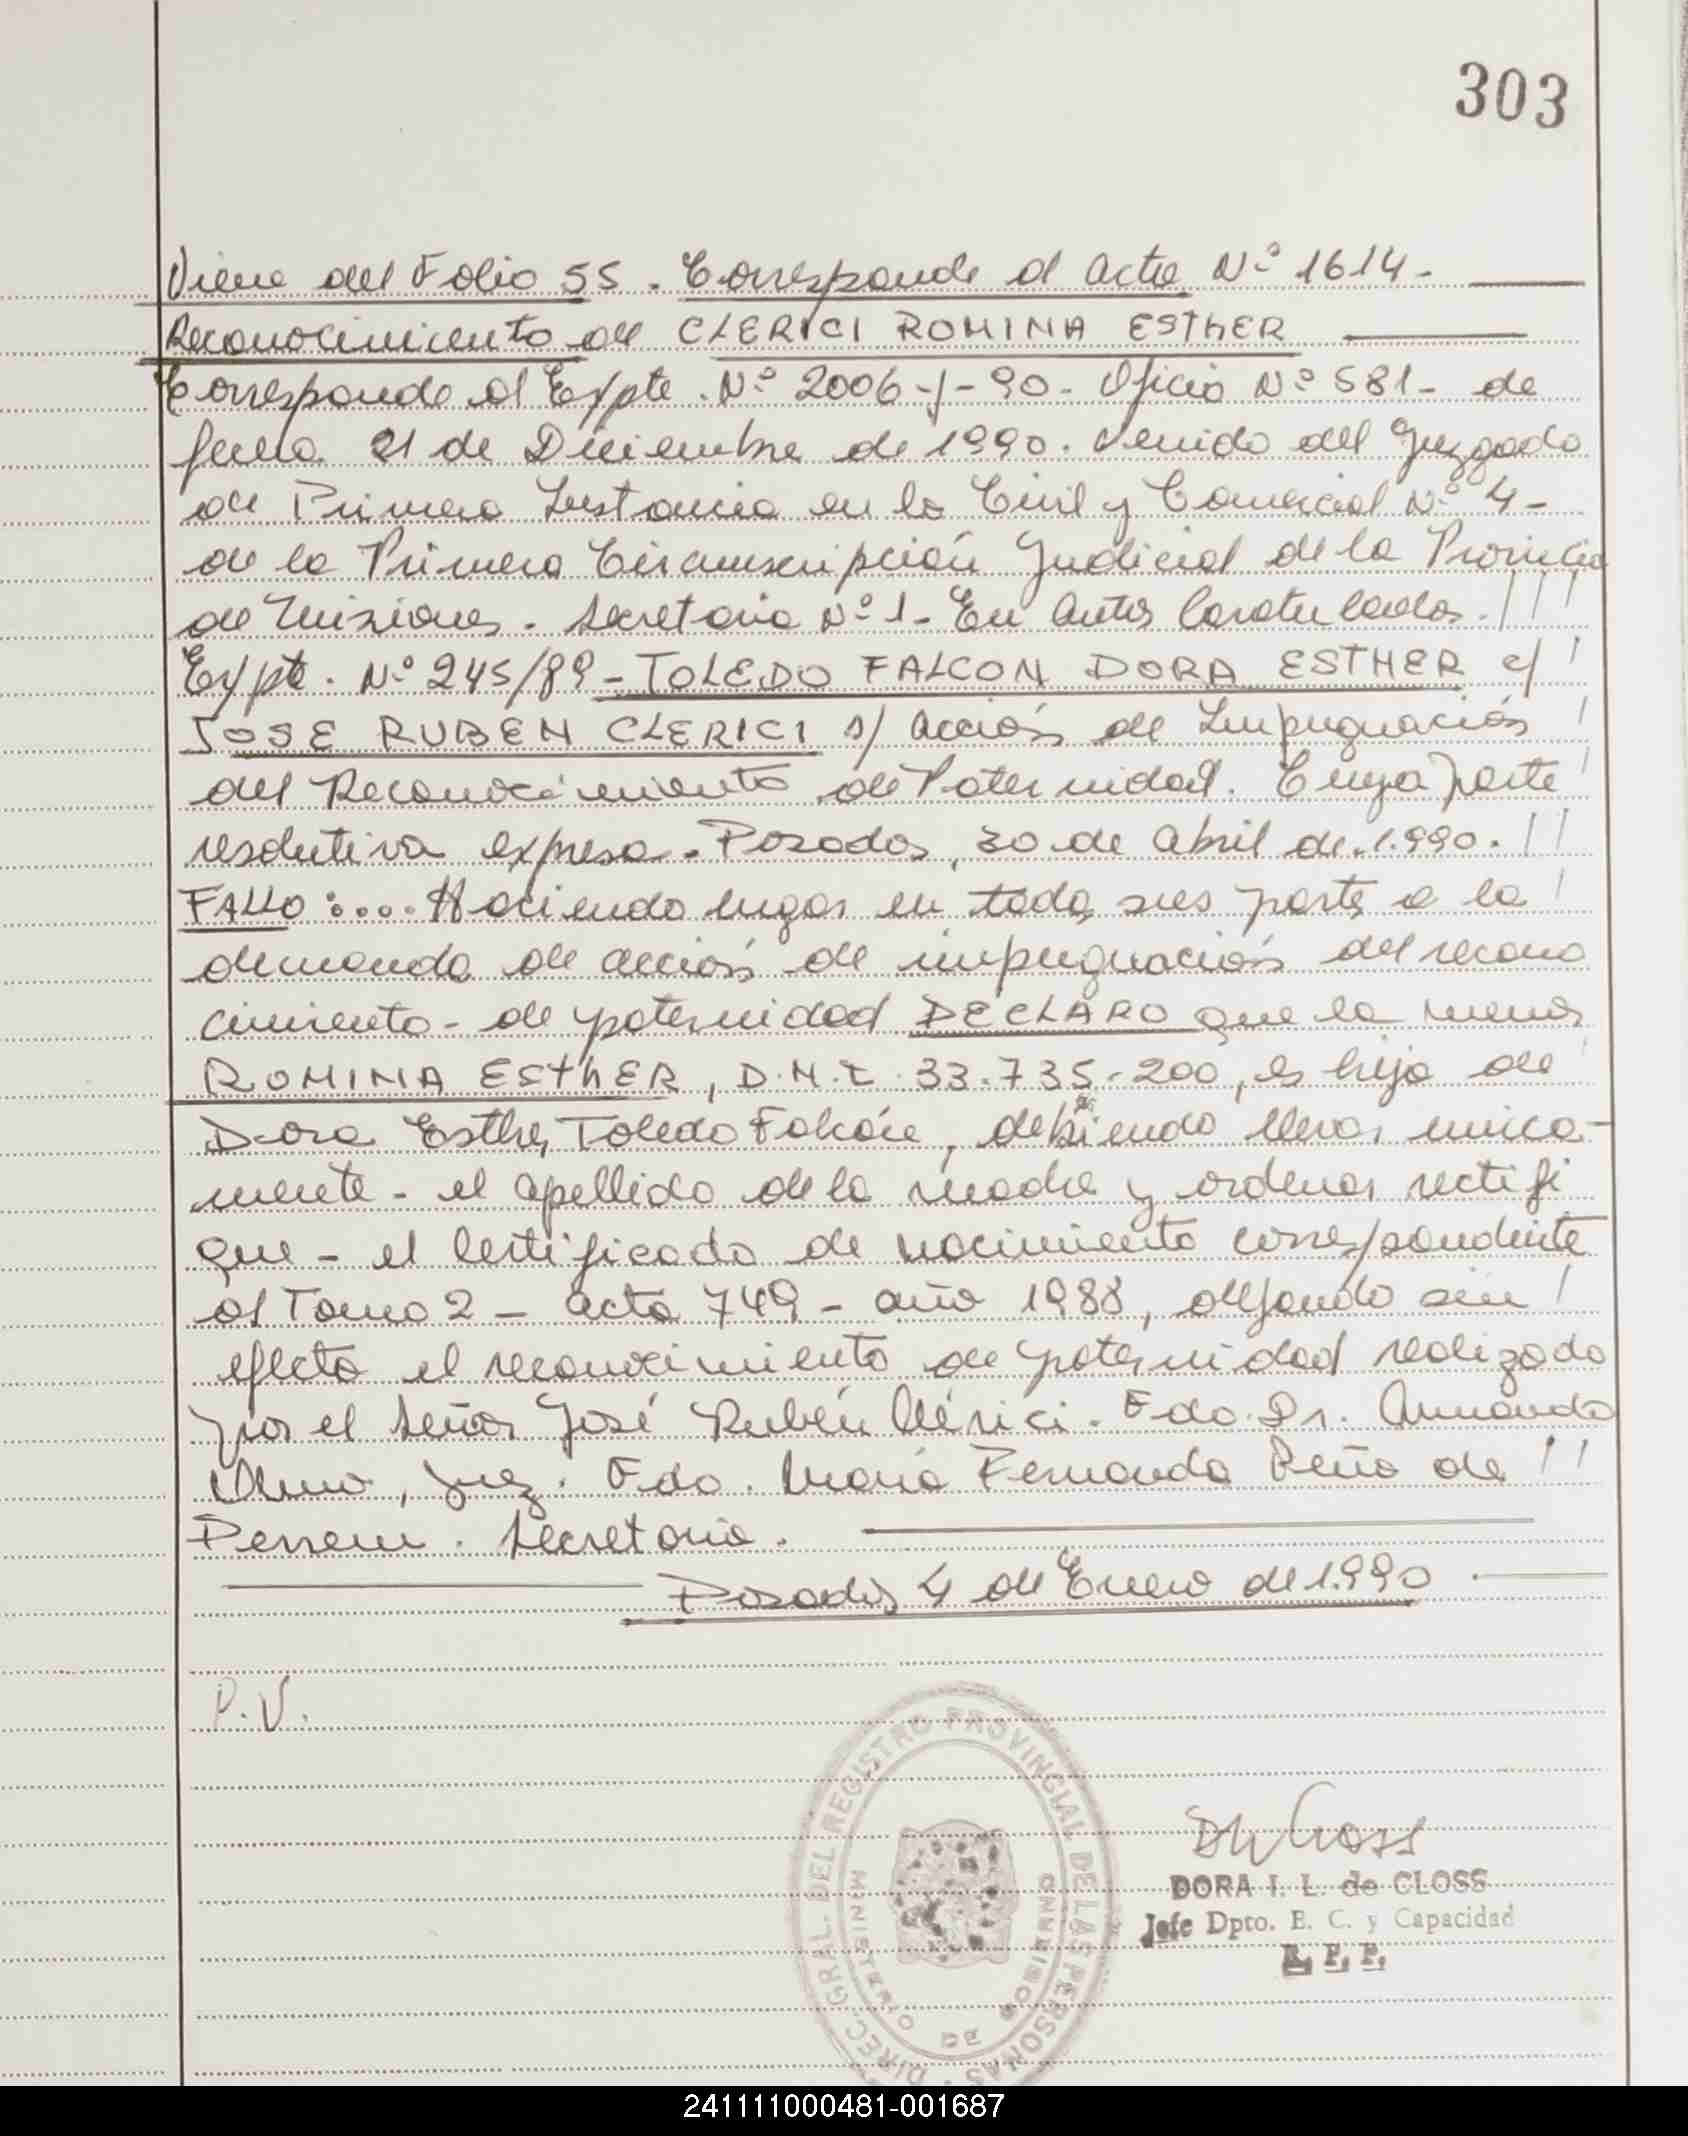 303
Viene del Folio 55. Corresponde al Acta Nº 1614-
Reconocimiento de CLERICI ROMINA ESTHER
Corresponde al Expte. Nº 2006-J-90- Oficio Nº 581- de
fecha 21 de Diciembre de 1990. Venido del Juzgado
de Primera Instancia en lo Civil y Comercial Nº 4-
de la Primera Circunscripción Judicial de la Provincia
de Misiones. Secretaria Nº 1- En Autos Caratulados.
Expte. Nº 245/89-TOLEDO FALCON DORA ESTHER c/
JOSE RUBEN CLERICI s/ Acción de Impugnación
del Reconocimiento de Paternidad. Cuya parte
resolutiva expresa. Posadas, 30 de Abril de 1.990.
FALLO:.... Haciendo lugar en todas sus partes a la
demanda de acción de impugnación del recono
cimiento- de paternidad DECLARO que la menor
ROMINA ESTHER, D.N.I. 33.735.200, es hija de
Dora Esther Toledo Falcón, debiendo llevar unica-
mente- el apellido de la madre y ordenar rectifi
que- el certificado de nacimiento correspondiente
al Tomo 2- acta 749- año 1988, dejando sin
efecto el reconocimiento de paternidad realizado
por el Señor José Rubén Clérici. Fdo. Dr. Armando
Juez. Fdo. María Fernanda Peña de
Secretaria.
Posadas 4 de Enero de 1.990
P.V.
DIREC. GRAL. DEL REGISTRO PROVINCIAL DE LAS PERSONAS
MINISTERIO DE GOBIERNO
DORA I. L. de CLOSS
Jefe Dpto. E. C. y Capacidad
R. P. P.
241111000481-001687